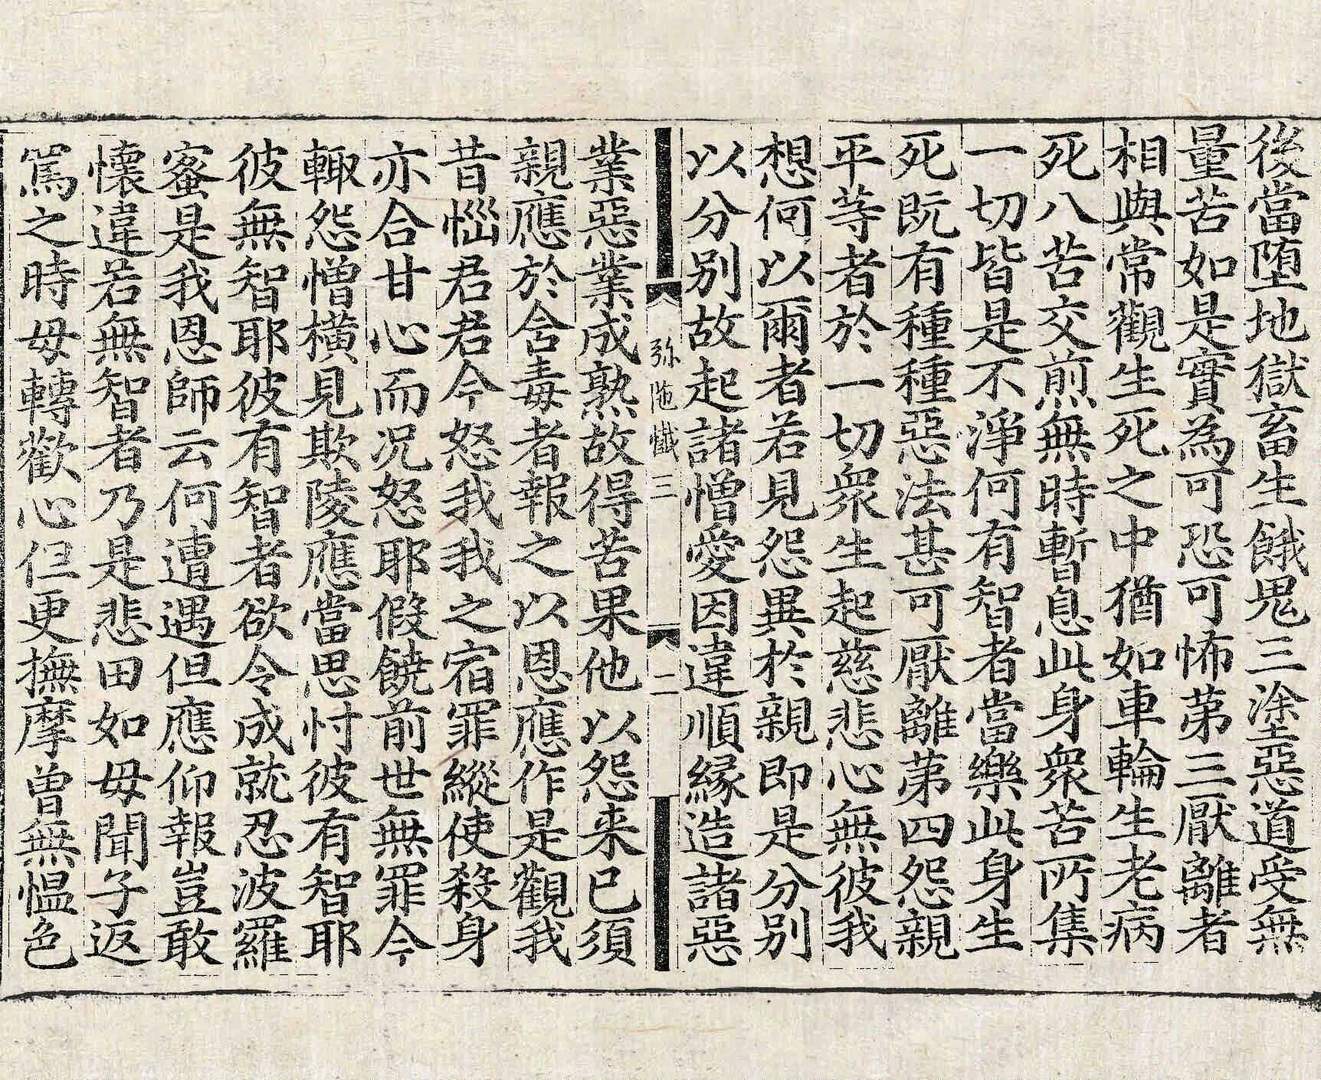 後當堕地獄畜生餓鬼三塗惡道受無
量苦如是實為可恐可怖苐三厭離者
相與常觀生死之中猶如車輪生老病
死八苦交煎無時暫息此身衆苦所集
一切皆是不淨何有智者當樂此身生
死既有種種惡法甚可厭離苐四怨親
平等者於一切衆生起慈悲心無彼我
想何以爾者若見怨異於親即是分别
以分别故起諸憎愛因違順縁造諸惡
弥陁懺三 二
業惡業成熟故得苦果他以怨来已須
親應於含毒者報之以恩應作是觀我
昔惱君君今怒我我之宿罪縱使殺身
亦合甘心而况怒耶假饒前世無罪今
輙怨憎橫見欺陵應當思忖彼有智耶
彼無智耶彼有智者欲令成就忍波羅
蜜是我恩師云何遭遇但應仰報豈敢
懐違若無智者乃是悲田如母聞子返
罵之時母轉歡心但更撫摩曽無愠色